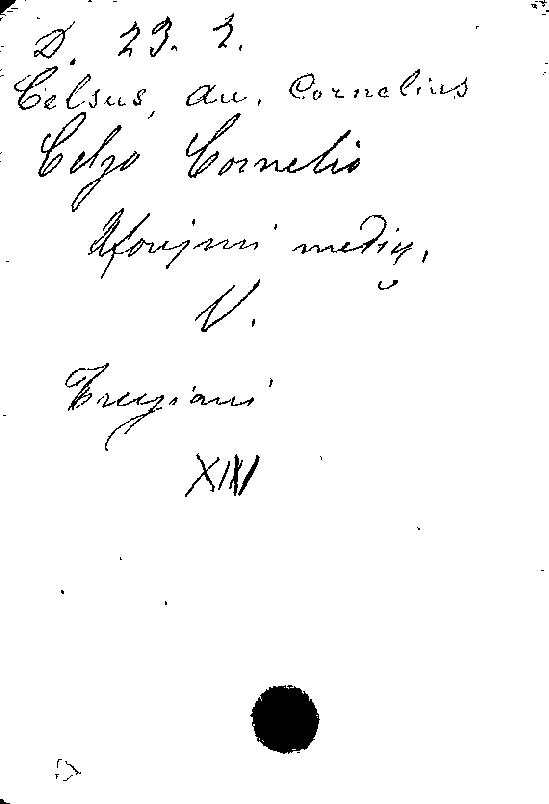 D. 23. 2.
Celsus, Au. Cornelius
Celzo Cornelio
Aforismi medici,
V.
Trugiani
XIII